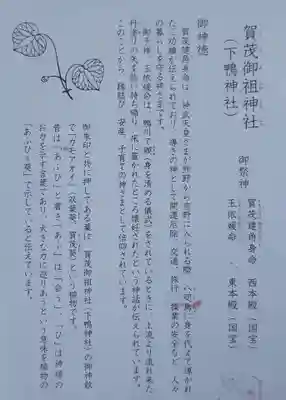 賀茂御祖神社
(下鴨神社)
御祭神
賀茂建角身命 西本殿(国宝)
玉依媛命 東本殿(国宝)
御神徳
賀茂建角身命は、神武天皇が熊野から吉野に入られる際、八咫烏に身を代えて導かれ
た功績が伝えられており、導きの神として開運厄除、交通、旅行、操業の安全など、人々
の暮らしを守る神さまです。
御子神、玉依媛命は、鴨川で禊(身を清める儀式)をされているときに、上流より流れ来た
丹塗りの矢を拾い持ち帰り、床に置かれたところ懐妊されたという神話が伝えられています。
このことから、縁結び、安産、子育ての神さまとして信仰されています。
御朱印と共に押してある葉は、賀茂御祖神社(下鴨神社)の御神紋
で「カモアオイ」(双葉葵、賀茂葵)という植物です。
昔は「あふひ」と書き、「あふ」は「会う」、「ひ」は神様の
お力を示す言葉であり、大きな力に巡りあうという意味を植物の
「あふひ葵」で示していると伝えています。